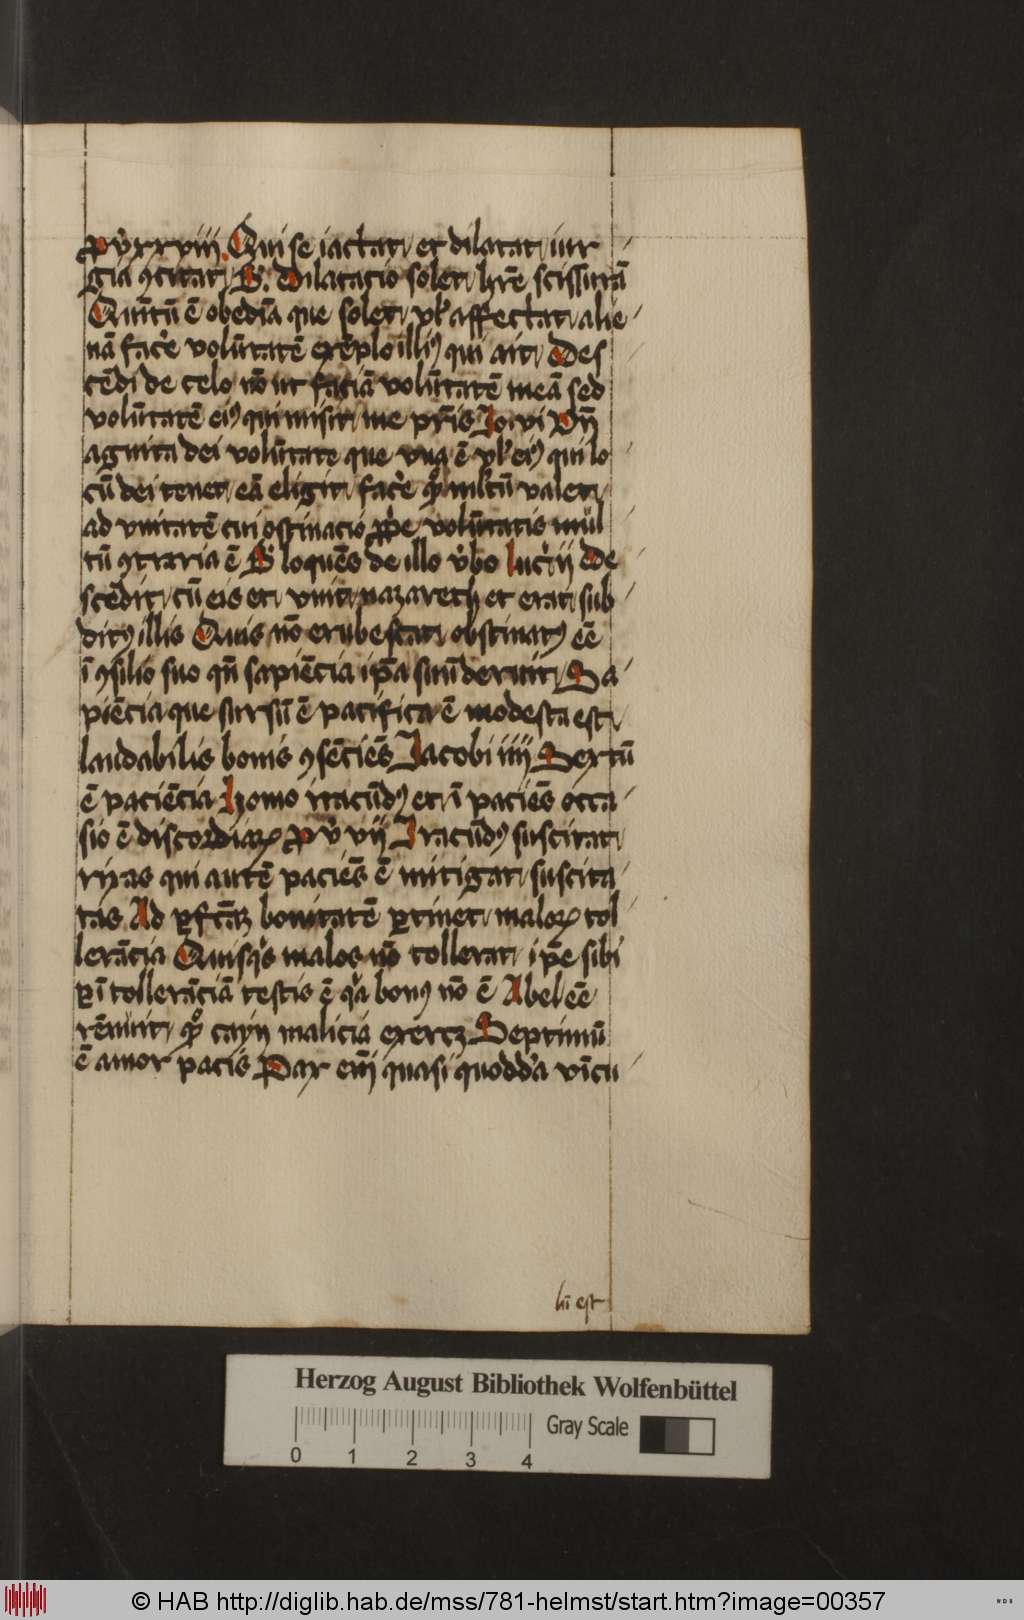 ꝓv̉ xxviij Qui se iactat et dilatat iur
gia ꝯcitat S. Dilatacio solet hr̄e scissurā
Quintū ē obediā que solet vl̓ affectat alie
nā facẻ volūtatē exēplo illiꝰ qui ait Des
cēdi de celo nō ut faciā volūtatē meā sed
volūtatē eiꝰ qui misit me pr̄is Jo vi Vn̄
agnita dei volūtate que vna ē vl̓ eiꝰ qui lo
cū dei tenet eā eligit facẻ qͦ mltū valet
ad vnitatē cui ostinacio ꝓp̓e volūtatis mul
tū ꝯtraria ē S loquēs de illo v̓bo luc̓ ij De
scēdit cū eis et venit nazareth et erat sub
ditꝰ illis Quis nō erubescat obstinatꝰ eē
ī ꝯsilio suo qn̄ sapiēcia ip̄a suū deruit Sa
piēcia que sursū ē pacifica ē modesta est
laudabilis bonis ꝯsēciēs Jacobi iiij Sextū
ē paciēcia Homo iracūdꝰ et ī paciēs occa
sio ē discordiaꝝ ꝓv̉ vij Iracūdꝰ suscitat
rixas qui autē paciēs ē mitigat suscita
tas Ad ꝑfcāꝫ bonitatē ꝑtinet maloꝝ tol
lerācia Quisqͥs malos nō tollerat ip̄e sibi
ꝑ ī tollerāciā testis ē qͣ bonꝰ nō ē Abel eē
rēnuit qͦ cayn malicia exercꝫ Septimū
ē amor pacis Pax em̄ quasi quoddā vīcu
lū est
Herzog August Bibliothek Wolfenbüttel
0 1 2 3 4
Gray Scale
© HAB http://diglib.hab.de/mss/781-helmst/start.htm?image=00357